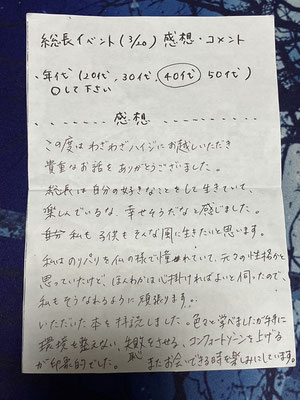 総長イベント(3/20) 感想・コメント
・年代(20代、30代、40代、50代)
○して下さい
感想
この度はわざわざハイジにお越しいただき
貴重なお話をありがとうございました。
総長は自分の好きなことをして生きていて、
楽しんでいるな、幸せそうだなと感じました。
自分 私も子供もそんな風に生きたいと思います。
私はのりパリを仏の様で憧れていて、元々の性格かと
思っていたけど、ほんわかは心掛ければよいと伺ったので、
私もそうなれるように頑張ります。
いただいた本を拝読しました。色々と学べましたが特に
環境を整えない、失敗をさせる、コンフォートゾーンを上げる
恥
が印象的でした。またお会いできる時を楽しみにしています。